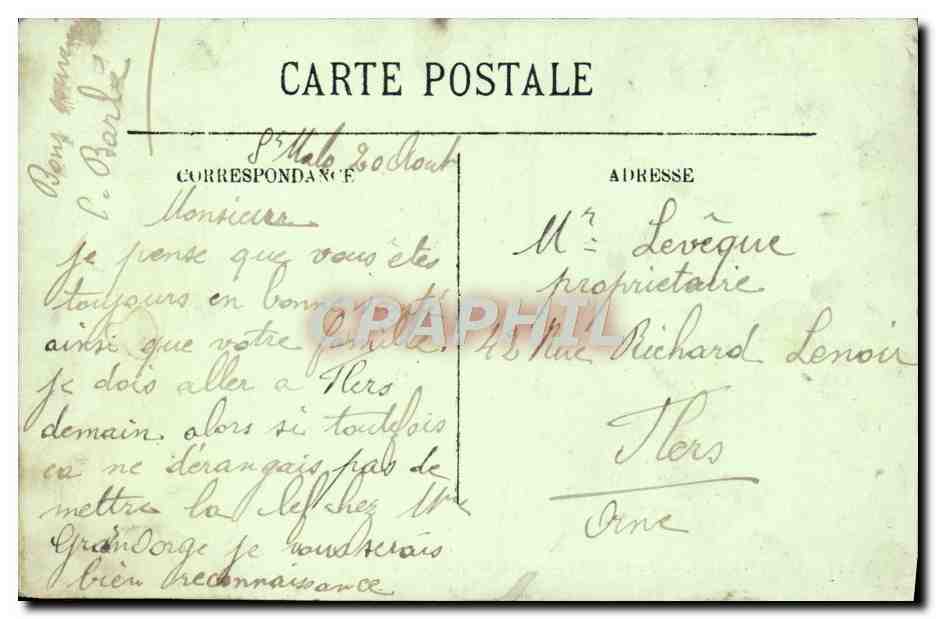 CARTE POSTALE
St Malo 20 Aout
CORRESPONDANCE
Monsieur
je pense que vous êtes
toujours en bonne santé
ainsi que votre famille.
je dois aller a Flers
demain alors si toutefois
ca ne dérangais pas de
mettre la clef chez Mme
Grandorge je vous serais
bien reconnaissance
Bons
C. Barlé
ADRESSE
Mr Levêque
propriétaire
42 Rue Richard Lenoir
Flers
Orne
CPAPHIL